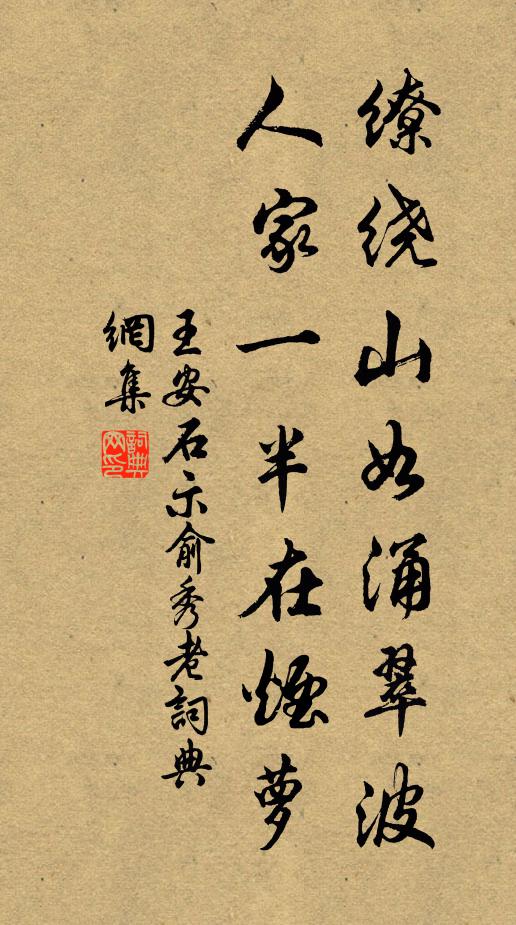 缭绕山如涌翠波
人家一半在煙萝
王安石示俞秀老詞典
網集
詞典
网印